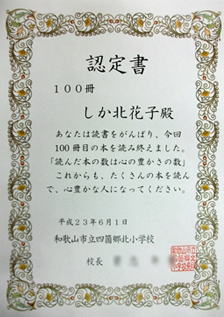 認定書
100冊
しか北花子殿
あなたは読書をがんばり、今回
100冊目の本を読み終えました。
「読んだ本の数は心の豊かさの数」
これからも、たくさんの本を読ん
で、心豊かな人になってください。
平成23年6月1日
和歌山市立四箇郷北小学校
校長